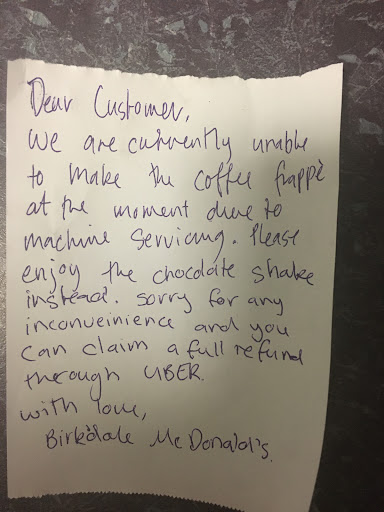 Dear Customer,
We are currently unable
to make the coffee frappè
at the moment due to
machine servicing. Please
enjoy the chocolate shake
instead. sorry for any
inconveinience and you
can claim a full refund
through UBER.
with love,
Birkdale McDonald's.